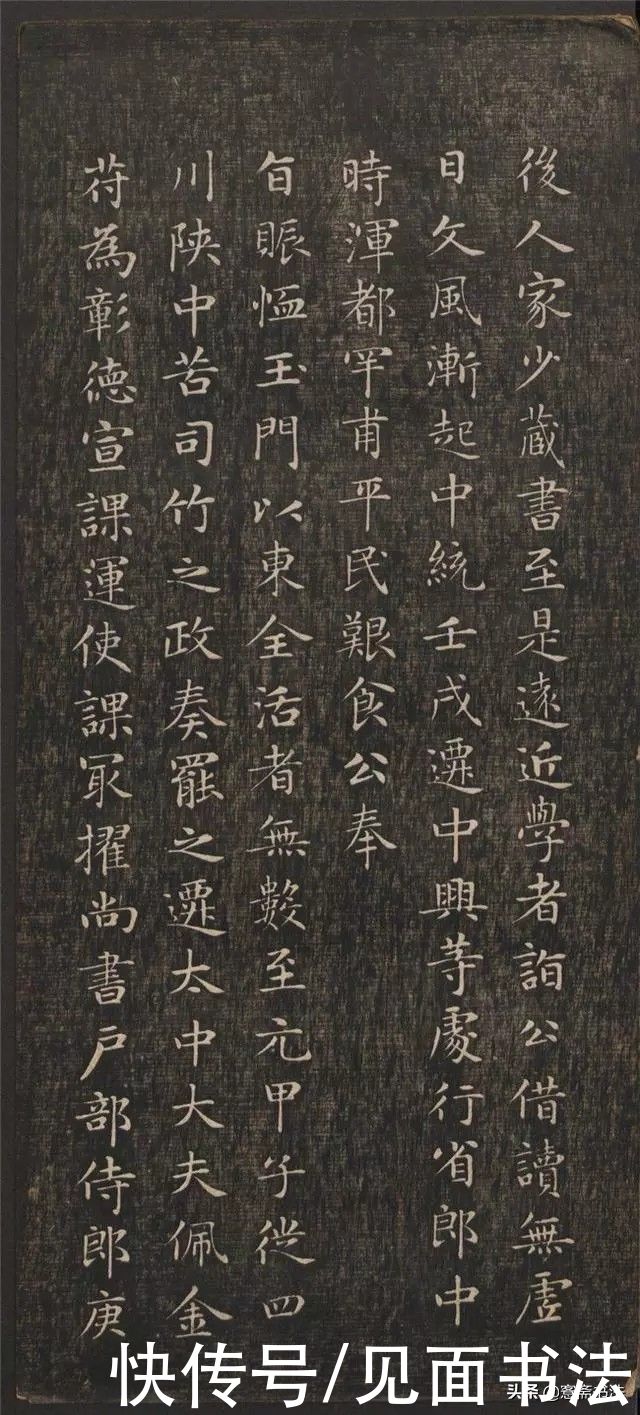 後人家少蔵書至是遠近學者詣公借讀無虛
日文風漸起中統壬戌遷中興等處行省郎中
時渾都罕甫平民艱食公奉
旨賑恤玉門以東全活者無數至元甲子従四
川陝中苦司竹之政奏罷之遷太中大夫佩金
符為彰德宣課運使課冣擢尚書戶部侍郎庚
快传号/见面书法
头条@愙斋书法